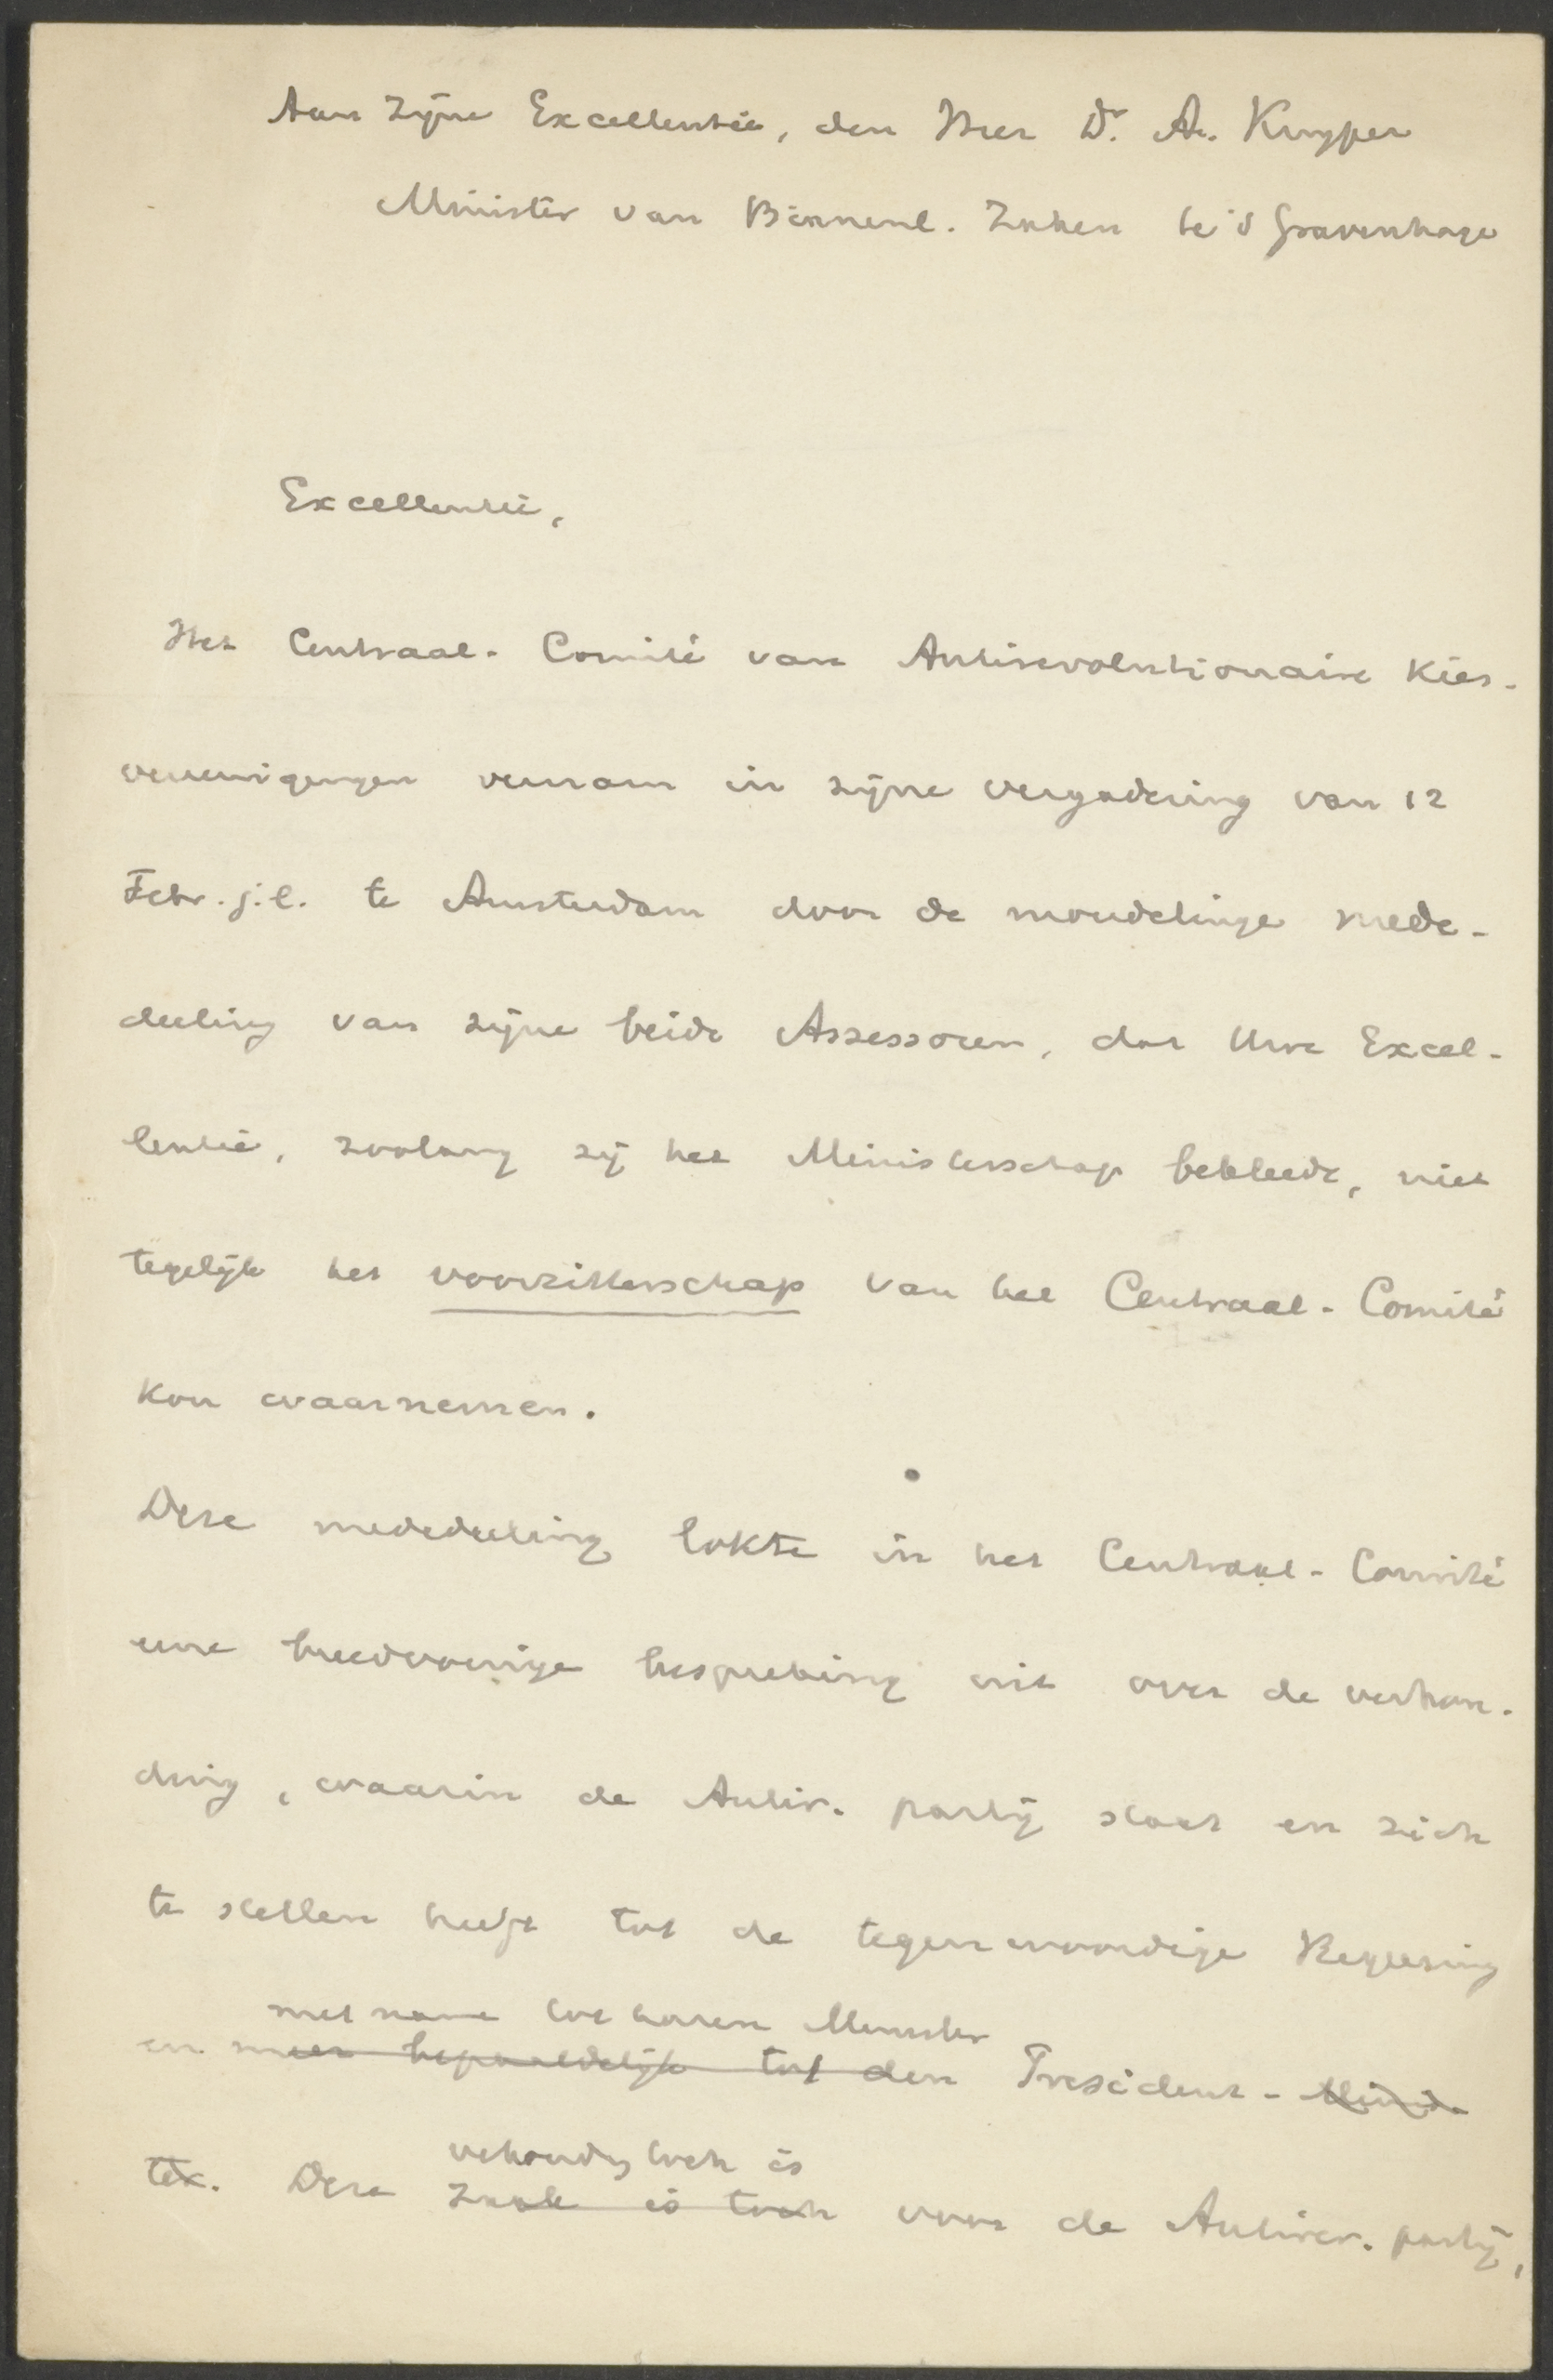 Aan Zijne Excellentie, den Heer Dr. A. Kuyper
Minister van Binnenl. Zaken te 's Gravenhage
Excellentie,
Het Centraal-Comité van Antirevolutionaire Kies-
vereenigingen vernam in zijne vergadering van 12
Febr. j.l. te Amsterdam door de mondelinge mede-
deeling van zijne beide Assessoren, dat Uwe Excel-
lentie, zoolang zij het Ministerschap bekleedt, niet
tegelijk het voorzitterschap van het Centraal-Comité
kon waarnemen.
Deze mededeeling lokte in het Centraal-Comité
eene breedvoerige bespreking uit over de verhou-
ding, waarin de Antir. partij staat en zich
te stellen heeft tot de tegenwoordige Regeering
met name tot haren Minister
en meer bepaaldelijk tot den President-Minis-
ter. Deze zaak is toch voor de Antirev. partij,
verhoudg toch is